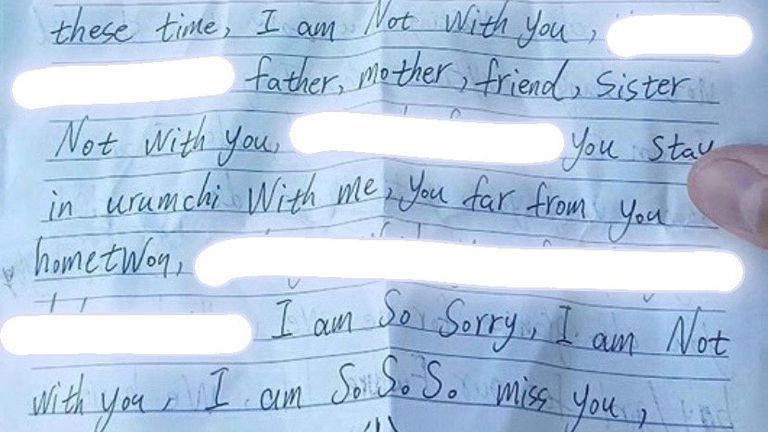 these time, I am Not With you,
father, mother, friend, sister
Not With you, you stay
in urumchi With me, you far from you
hometwon,
I am So Sorry, I am Not
with you, I am So. So. So. miss you,